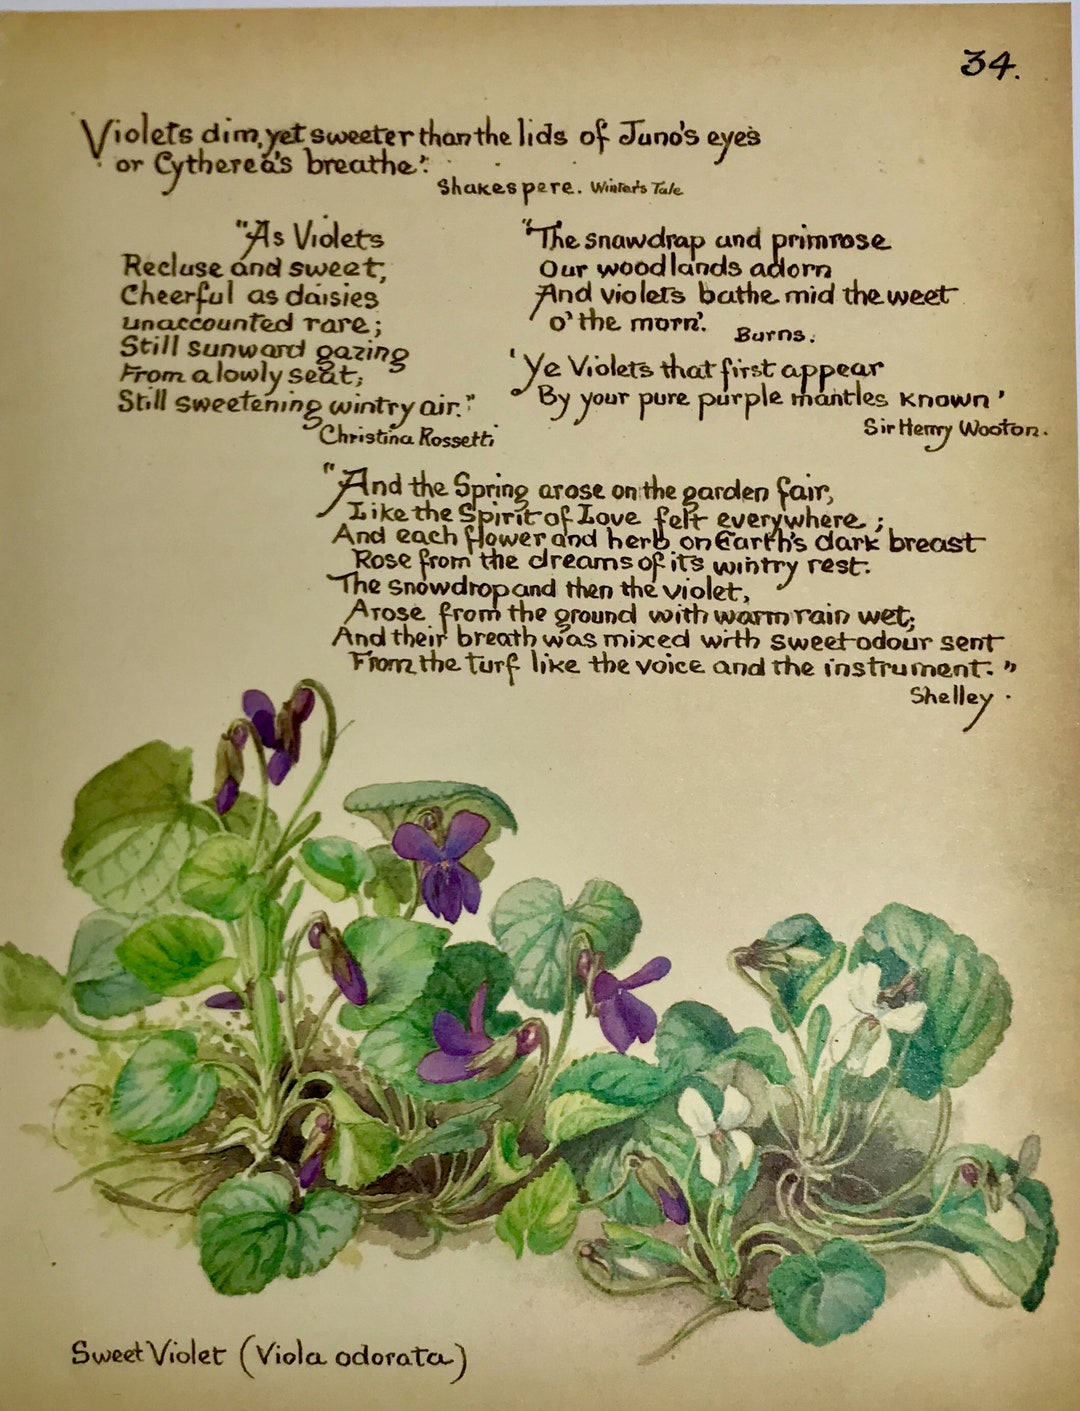 34.
Violets dim, yet sweeter than the lids of Juno's eyes
or Cytherea's breathe".
Shakespere. Winter's Tale
"As Violets
Recluse and sweet,
Cheerful as daisies
unaccounted rare;
Still sunward gazing
From a lowly seat;
Still sweetening wintry air."
Christina Rossetti
"The snawdrap and primrose
Our woodlands adorn
And violets bathe mid the weet
o' the morn'.
Burns.
'Ye Violets that first appear
By your pure purple mantles known'
Sir Henry Wooton.
"And the Spring arose on the garden fair,
Like the Spirit of Love felt everywhere;
And each flower and herb on Earth's dark breast
Rose from the dreams of its wintry rest.
The snowdrop and then the violet,
Arose from the ground with warm rain wet;
And their breath was mixed with sweet odour sent
From the turf like the voice and the instrument."
Shelley.
Sweet Violet (Viola odorata)